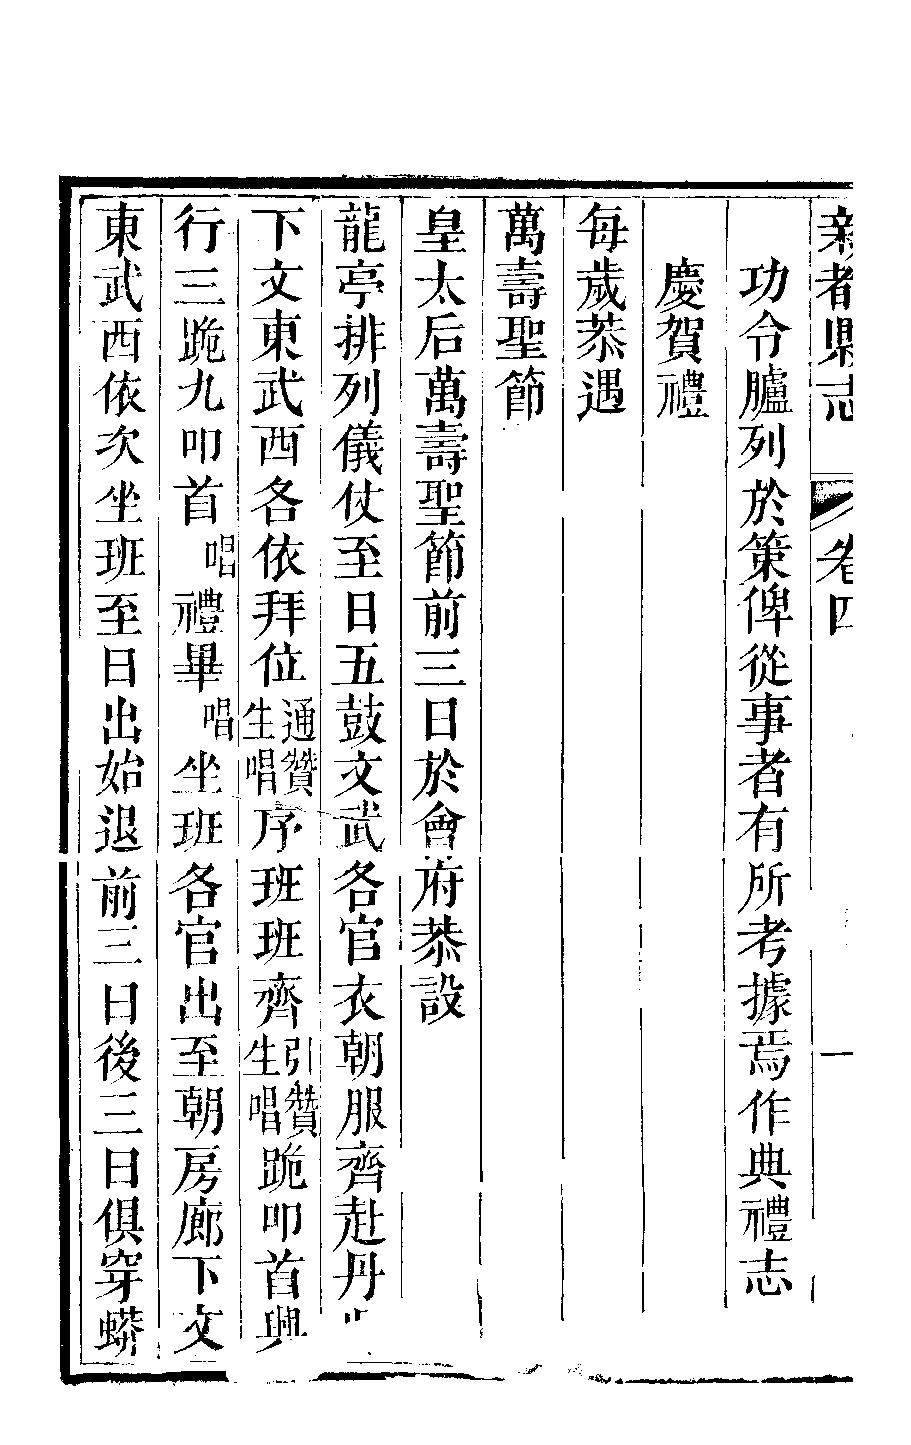 新都縣志 卷四 一
功令臚列於策俾從事者有所考據焉作典禮志
慶賀禮
每歲恭遇
萬壽聖節
皇太后萬壽聖節前三日於會府恭設
龍亭排列儀仗至日五鼓文武各官衣朝服齊赴丹
下文東武西各依拜位通贊生唱序班班齊引贊生唱跪叩首興
行三跪九叩首唱禮畢唱坐班各官出至朝房廊下文
東武西依次坐班至日出始退前三日後三日俱穿蟒